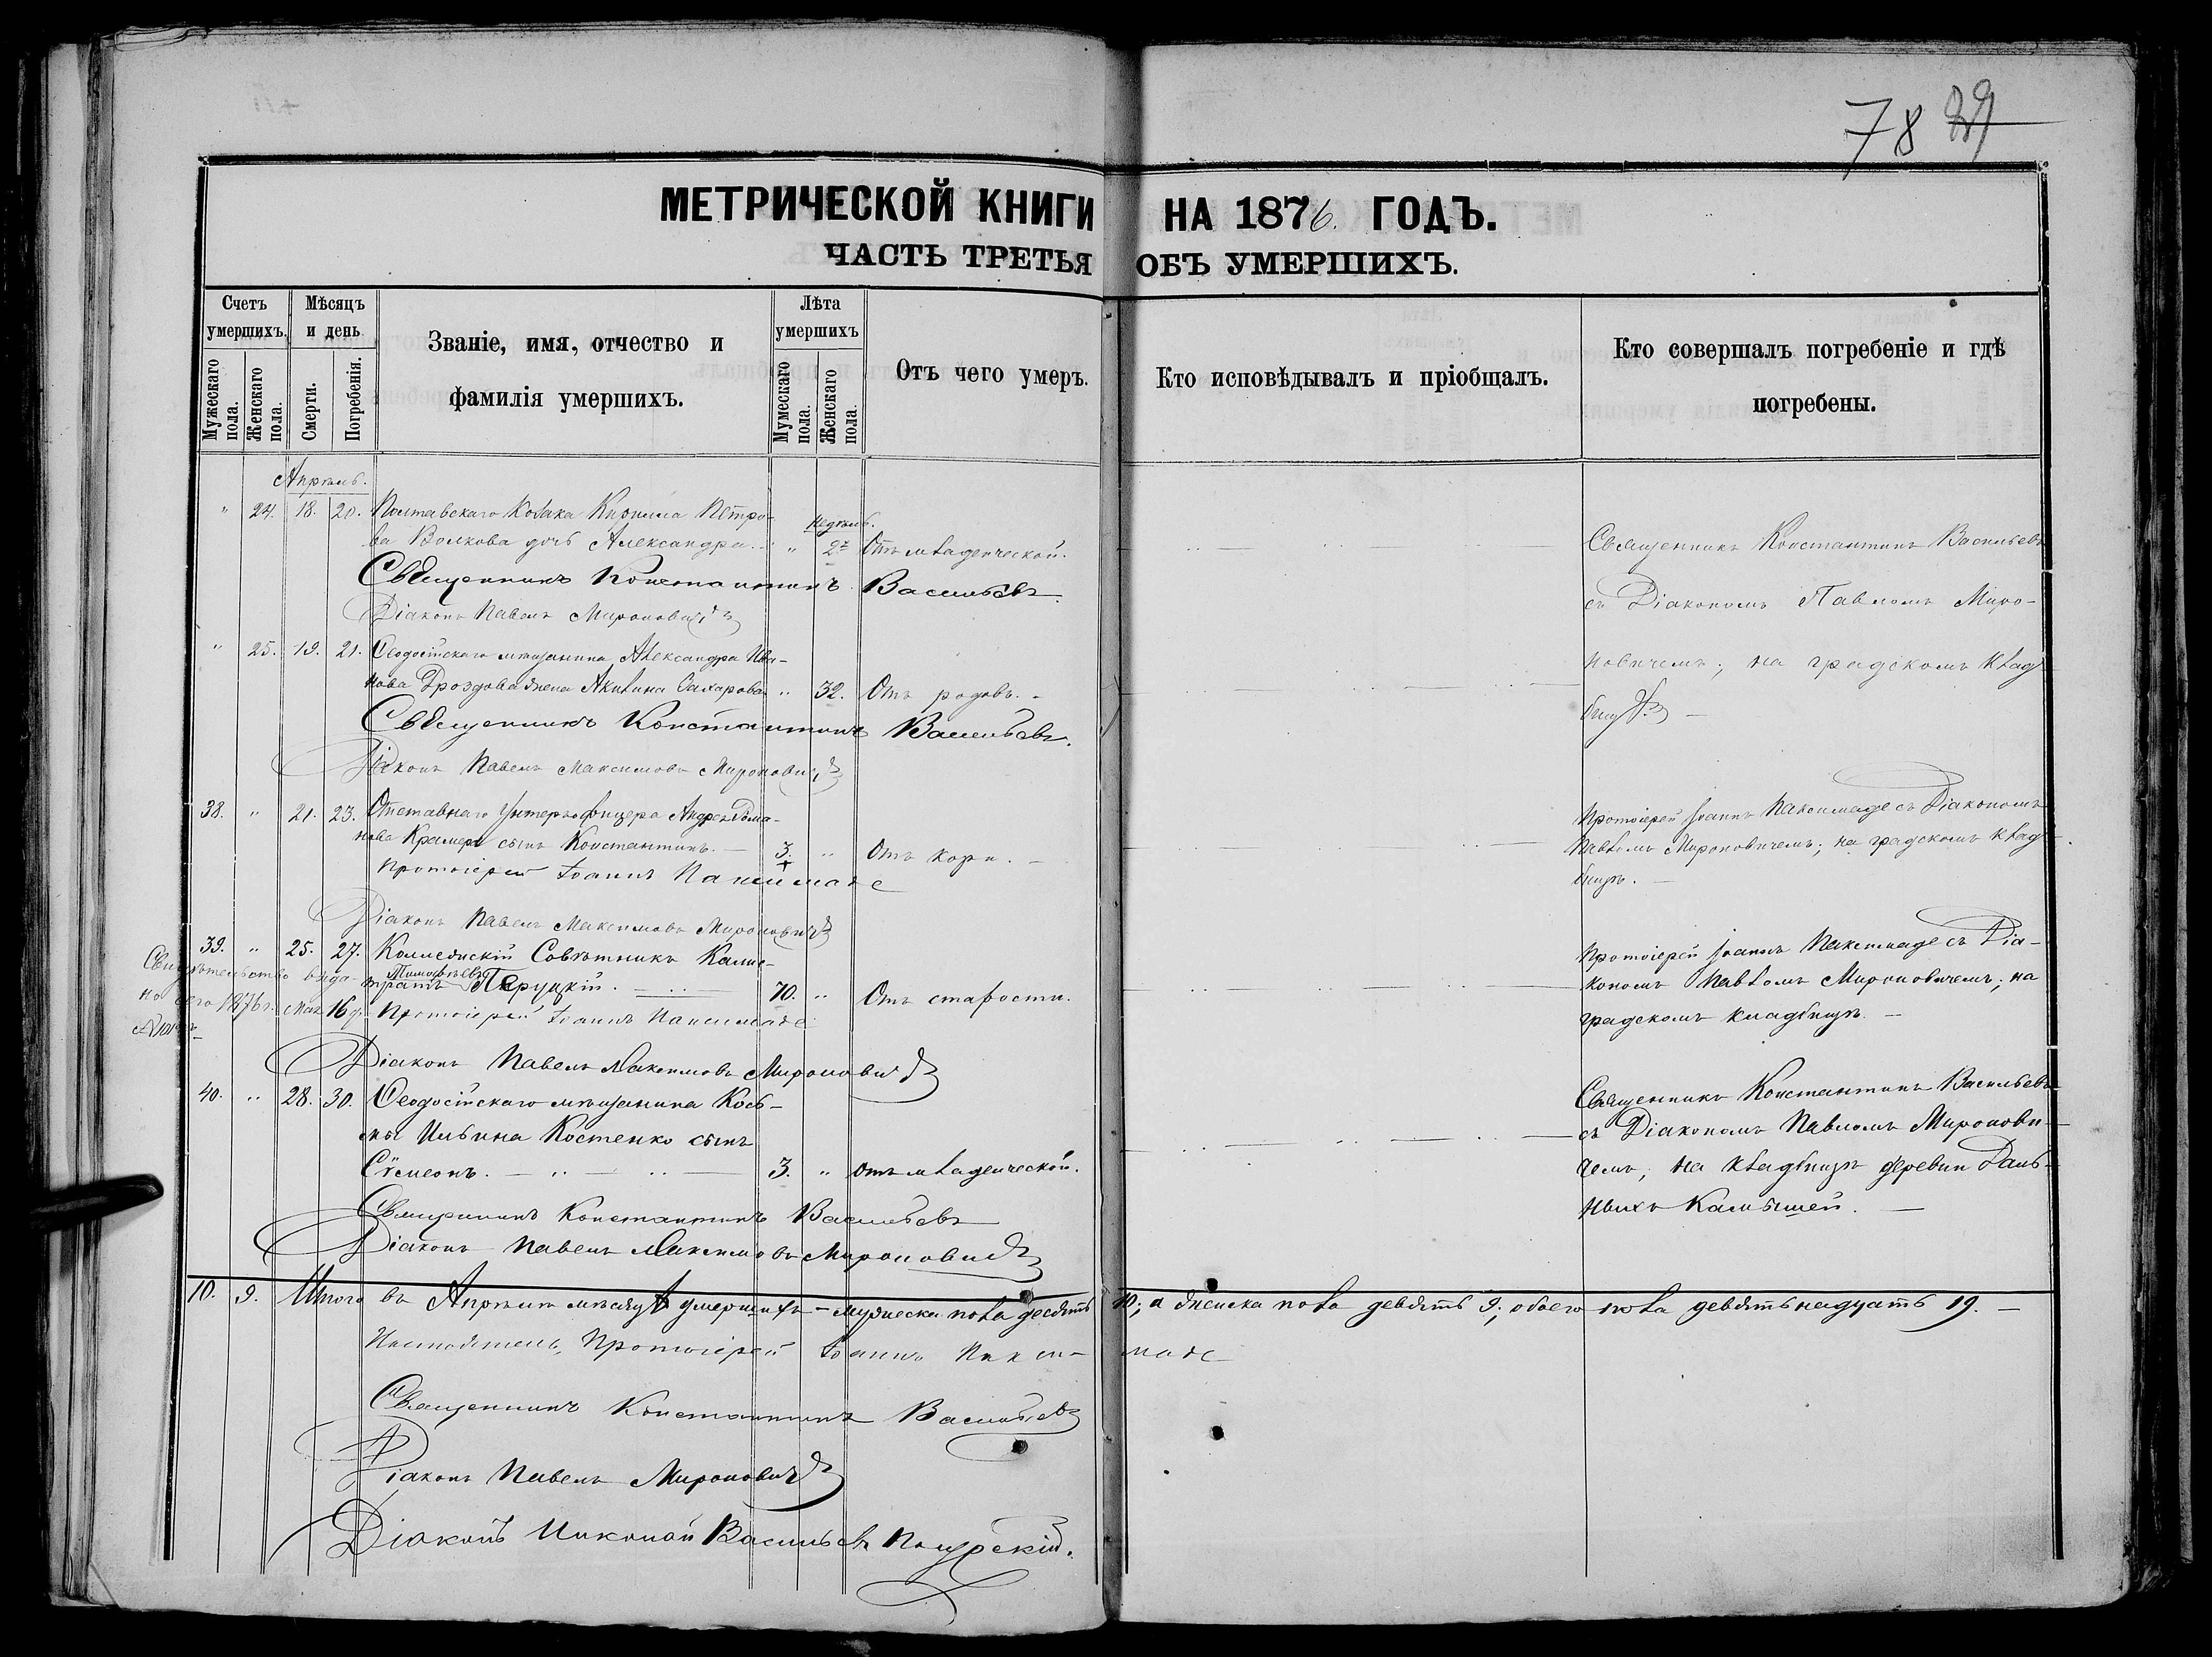 78 29
МЕТРИЧЕСКОЙ КНИГИ НА 1876. ГОДЪ.
ЧАСТЬ ТРЕТЬЯ ОБЪ УМЕРШИХЪ.
Счетъ умершихъ.
Мужескаго пола.
Женскаго пола.
Мѣсяцъ и день
Смерти.
Погребенія.
Званіе, имя, отчество и
фамилія умершихъ.
Лѣта умершихъ
Мужескаго пола.
Женскаго пола.
Отъ чего умеръ.
Кто исповѣдывалъ и пріобщалъ.
Кто совершалъ погребеніе и гдѣ
погребены.
Апрѣль.
" 24. 18. 20. Полтавскаго Козака Кирилла Петро-
недѣль.
ва Волкова дочь Александра. " 2 Отъ младенческой.
Священникъ Константинъ Васильевъ.
Діаконъ Павелъ Мироновичъ
Священникъ Константинъ Васильевъ
съ Діакономъ Павломъ Миро-
новичемъ; на градскомъ клад-
бищѣ.
" 25. 19. 21. Ѳеодосійскаго мѣщанина Александра Ива-
нова Дроздова жена Акилина Захарова " 32. Отъ родовъ.
Священникъ Константинъ Васильевъ.
Діаконъ Павелъ Максимовъ Мироновичъ
38. " 21. 23. Отставнаго Унтеръ-офицера Андрея Рома-
нова Крамера сынъ Константинъ. 3. " Отъ кори.
Протоіерей Іоаннъ Паксимаде
Діаконъ Павелъ Максимовъ Мироновичъ
Протоіерей Іоаннъ Паксимаде съ Діакономъ
Павломъ Мироновичемъ; на градскомъ клад-
бищѣ.
39. " 25. 27. Коллежскій Совѣтникъ Калис-
Тимофѣевъ
тратъ Перуцкій. 70. " Отъ старости.
Протоіерей Іоаннъ Паксимаде
Діаконъ Павелъ Максимовъ Мироновичъ
Свидѣтельство выда-
но сего 1876 г. Мая 16 д.
Протоіерей Іоаннъ Паксимаде съ Діа-
кономъ Павломъ Мироновичемъ; на
градскомъ кладбищѣ.
40. " 28. 30. Ѳеодосійскаго мѣщанина Козь-
мы Ильина Костенко сынъ
Сѵмеонъ. 3. " Отъ младенческой.
Священникъ Константинъ Васильевъ
Діаконъ Павелъ Максимовъ Мироновичъ
Священникъ Константинъ Васильевъ
съ Діакономъ Павломъ Миронови-
чемъ, на кладбищѣ деревни Даль-
нихъ Камышей.
10. 9. Итого въ Апрѣлѣ мѣсяцѣ умершихъ – мужеска пола десять 10; а женска пола девять 9; обоего пола девятьнадцать 19.
Настоятель, Протоіерей Іоаннъ Паксимаде
Священникъ Константинъ Васильевъ
Діаконъ Павелъ Мироновичъ
Діаконъ Николай Васильевъ